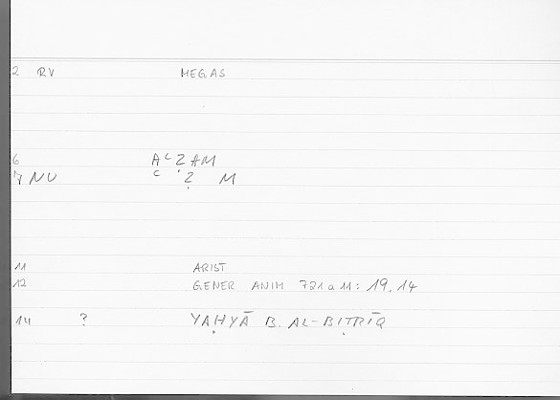 2 RV MEGAS
6 AᶜẒAM
7 NU C Ẓ M
11 ARIST
12 GENER ANIM 721a11: 19.14
14 ? YAḤYĀ B. AL-BIṬRĪQ